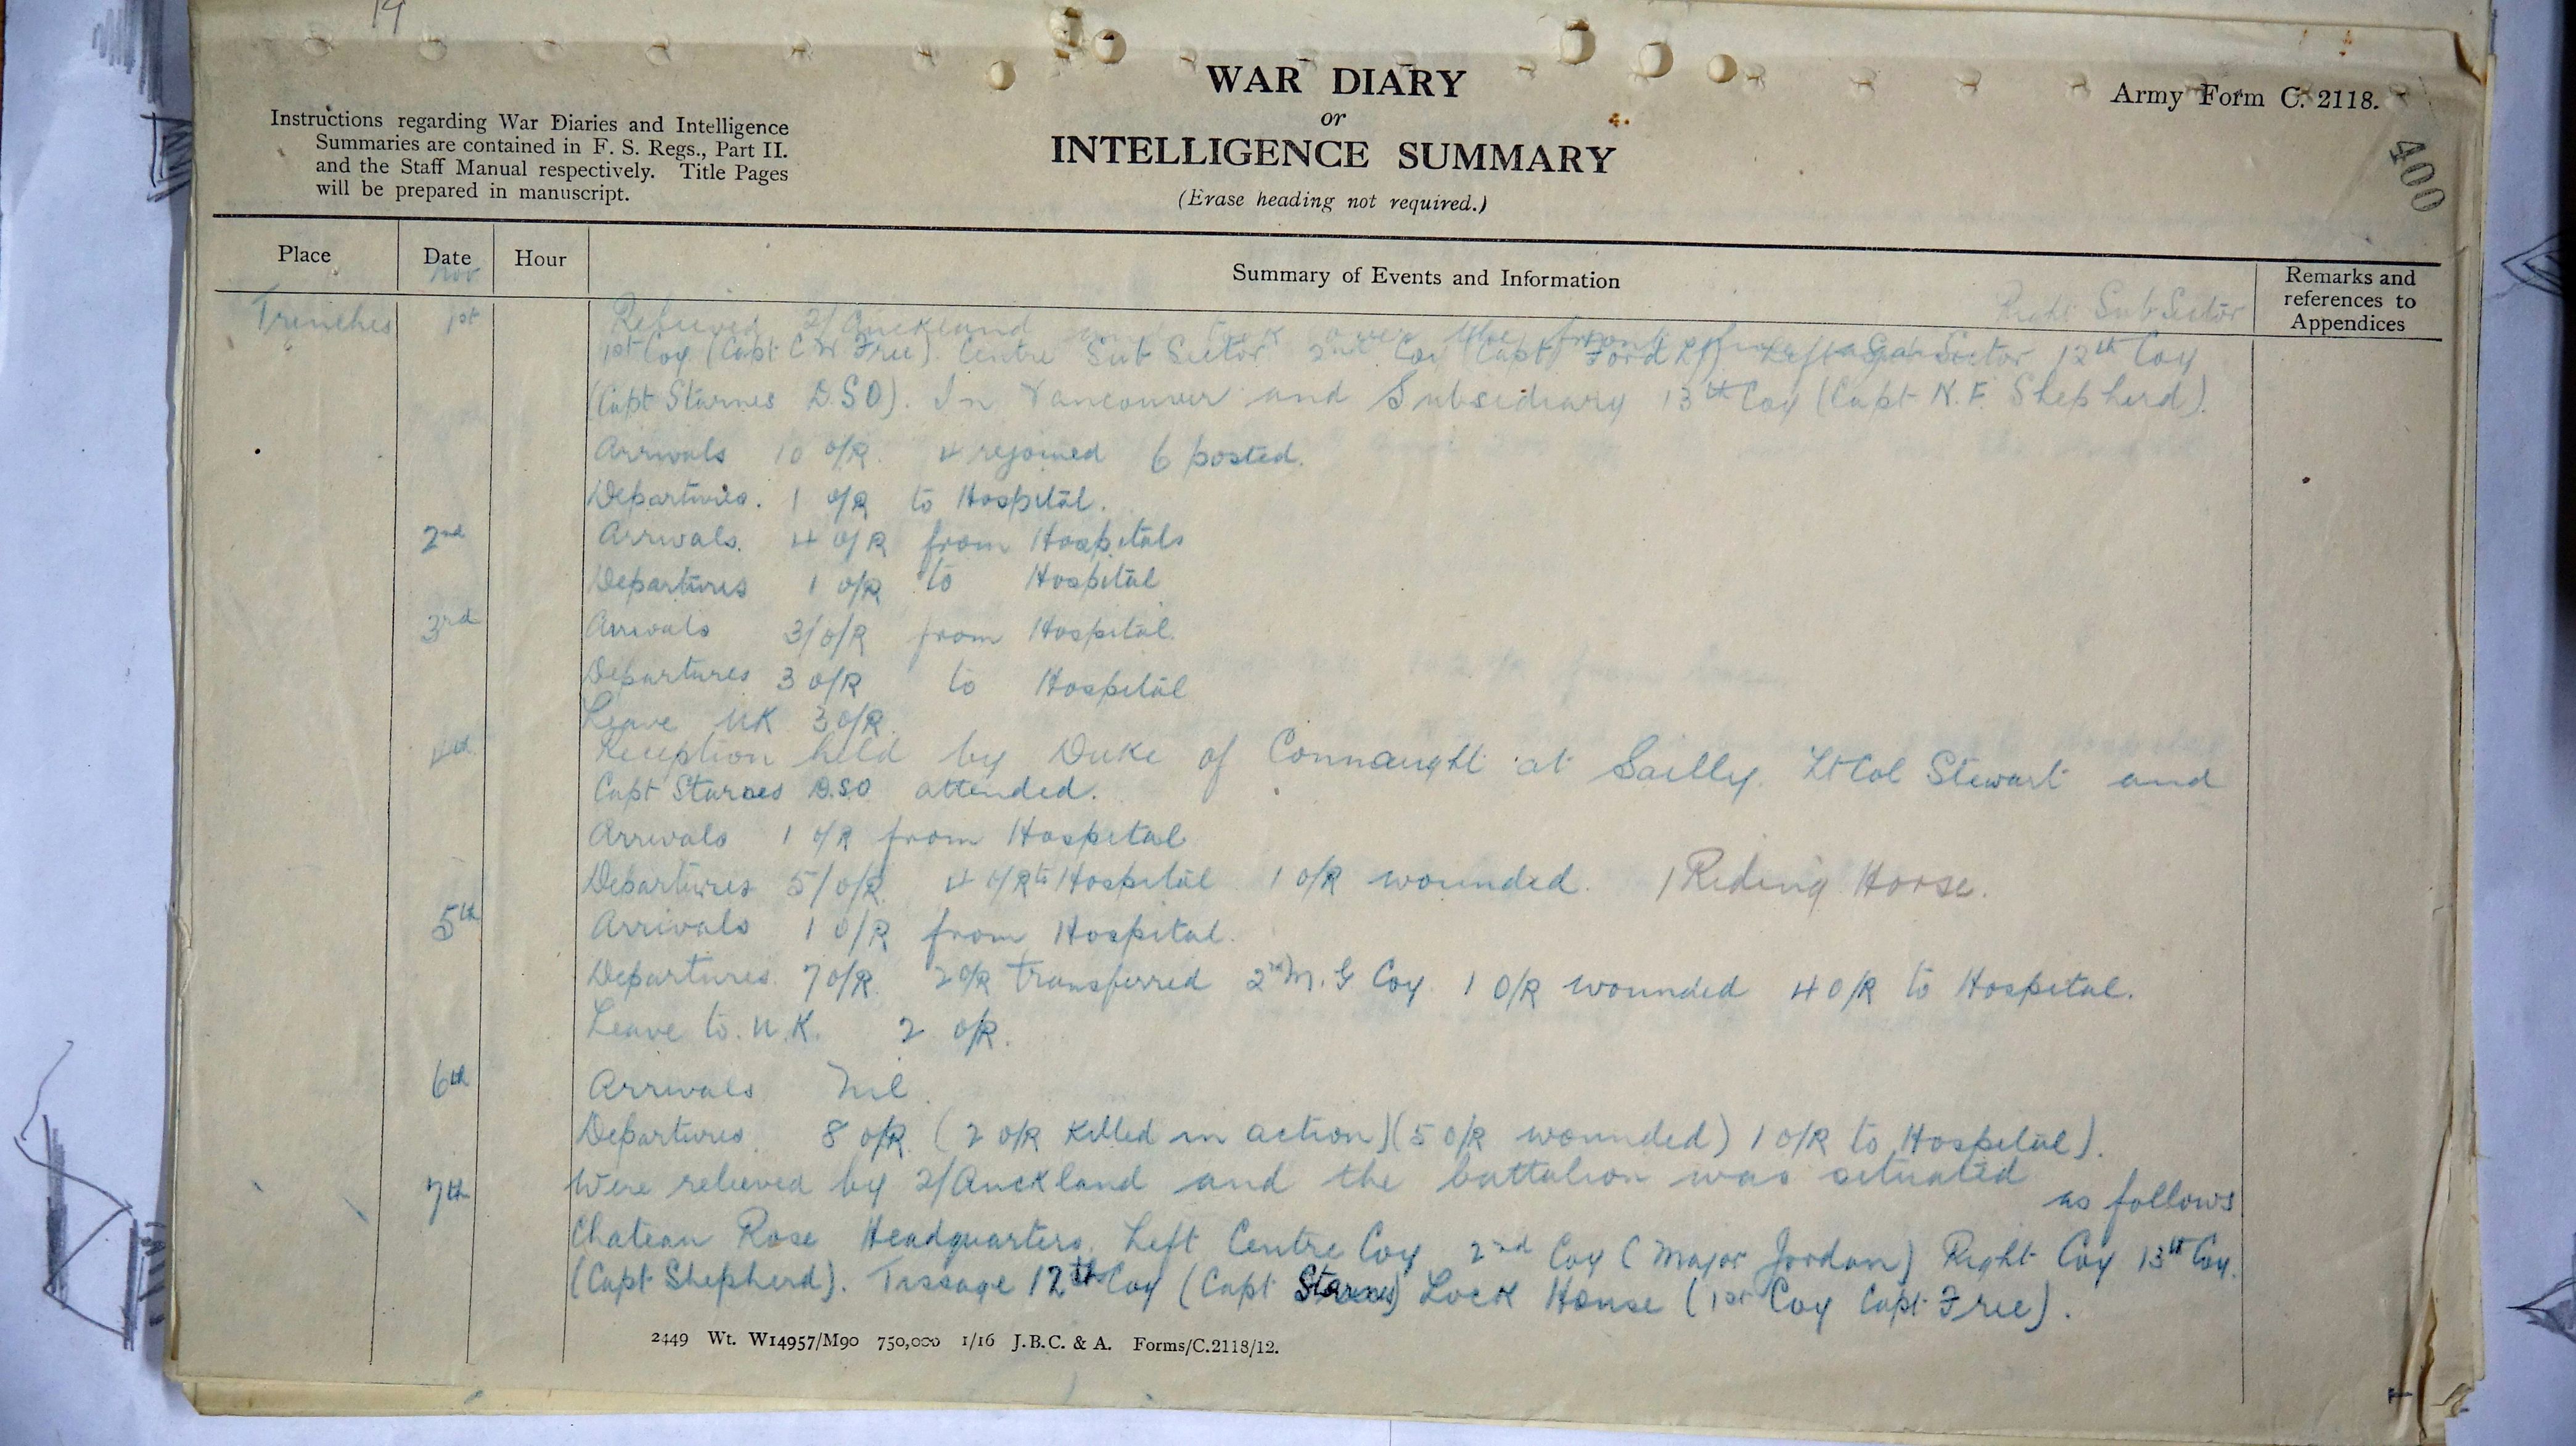 14
WAR DIARY
or
INTELLIGENCE SUMMARY
(Erase heading not required.)
Army Form C. 2118.
400
Instructions regarding War Diaries and Intelligence
Summaries are contained in F. S. Regs., Part II.
and the Staff Manual respectively. Title Pages
will be prepared in manuscript.
Place Date Hour Summary of Events and Information Remarks and references to Appendices
Nov
Trenches 1st Relieved 2/Auckland and took over the front line Right Sub Sector
1st Coy (Capt C W Free). Centre Sub Sector 2nd Coy (Capt Ford) Left Sub Sector 12th Coy
(Capt Starnes D.S.O). In Vancouver and Subsidiary 13th Coy (Capt N. F. Shepherd).
Arrivals 10 O/R. 4 rejoined 6 posted.
Departures. 1 O/R to Hospital.
2nd Arrivals. 4 O/R from Hospitals
Departures 1 O/R to Hospital
3rd Arrivals 3/O/R from Hospital.
Departures 3 O/R to Hospital
Leave UK 3 O/R.
4th Reception held by Duke of Connaught at Sailly. Lt Col Stewart and
Capt Starnes D.S.O. attended.
Arrivals 1 O/R from Hospital
Departures 5/O/R. 4 O/R to Hospital 1 O/R wounded. 1 Riding Horse.
5th Arrivals 1 O/R from Hospital.
Departures. 7 O/R. 2 O/R transferred 2nd M.G Coy. 1 O/R wounded 4 O/R to Hospital.
Leave to U.K. 2 O/R.
6th Arrivals Nil.
Departures. 8 O/R. (2 O/R Killed in action) (5 O/R wounded) 1 O/R to Hospital).
7th Were relieved by 2/Auckland and the battalion was situated as follows
Chateau Rose Headquarters. Left Centre Coy 2nd Coy (Major Jordan) Right Coy 13th Coy.
(Capt Shepherd). Tissage 12th Coy (Capt Starnes) Lock House (1st Coy Capt Free).
2449 Wt. W14957/M90 750,000 1/16 J.B.C. & A. Forms/C.2118/12.